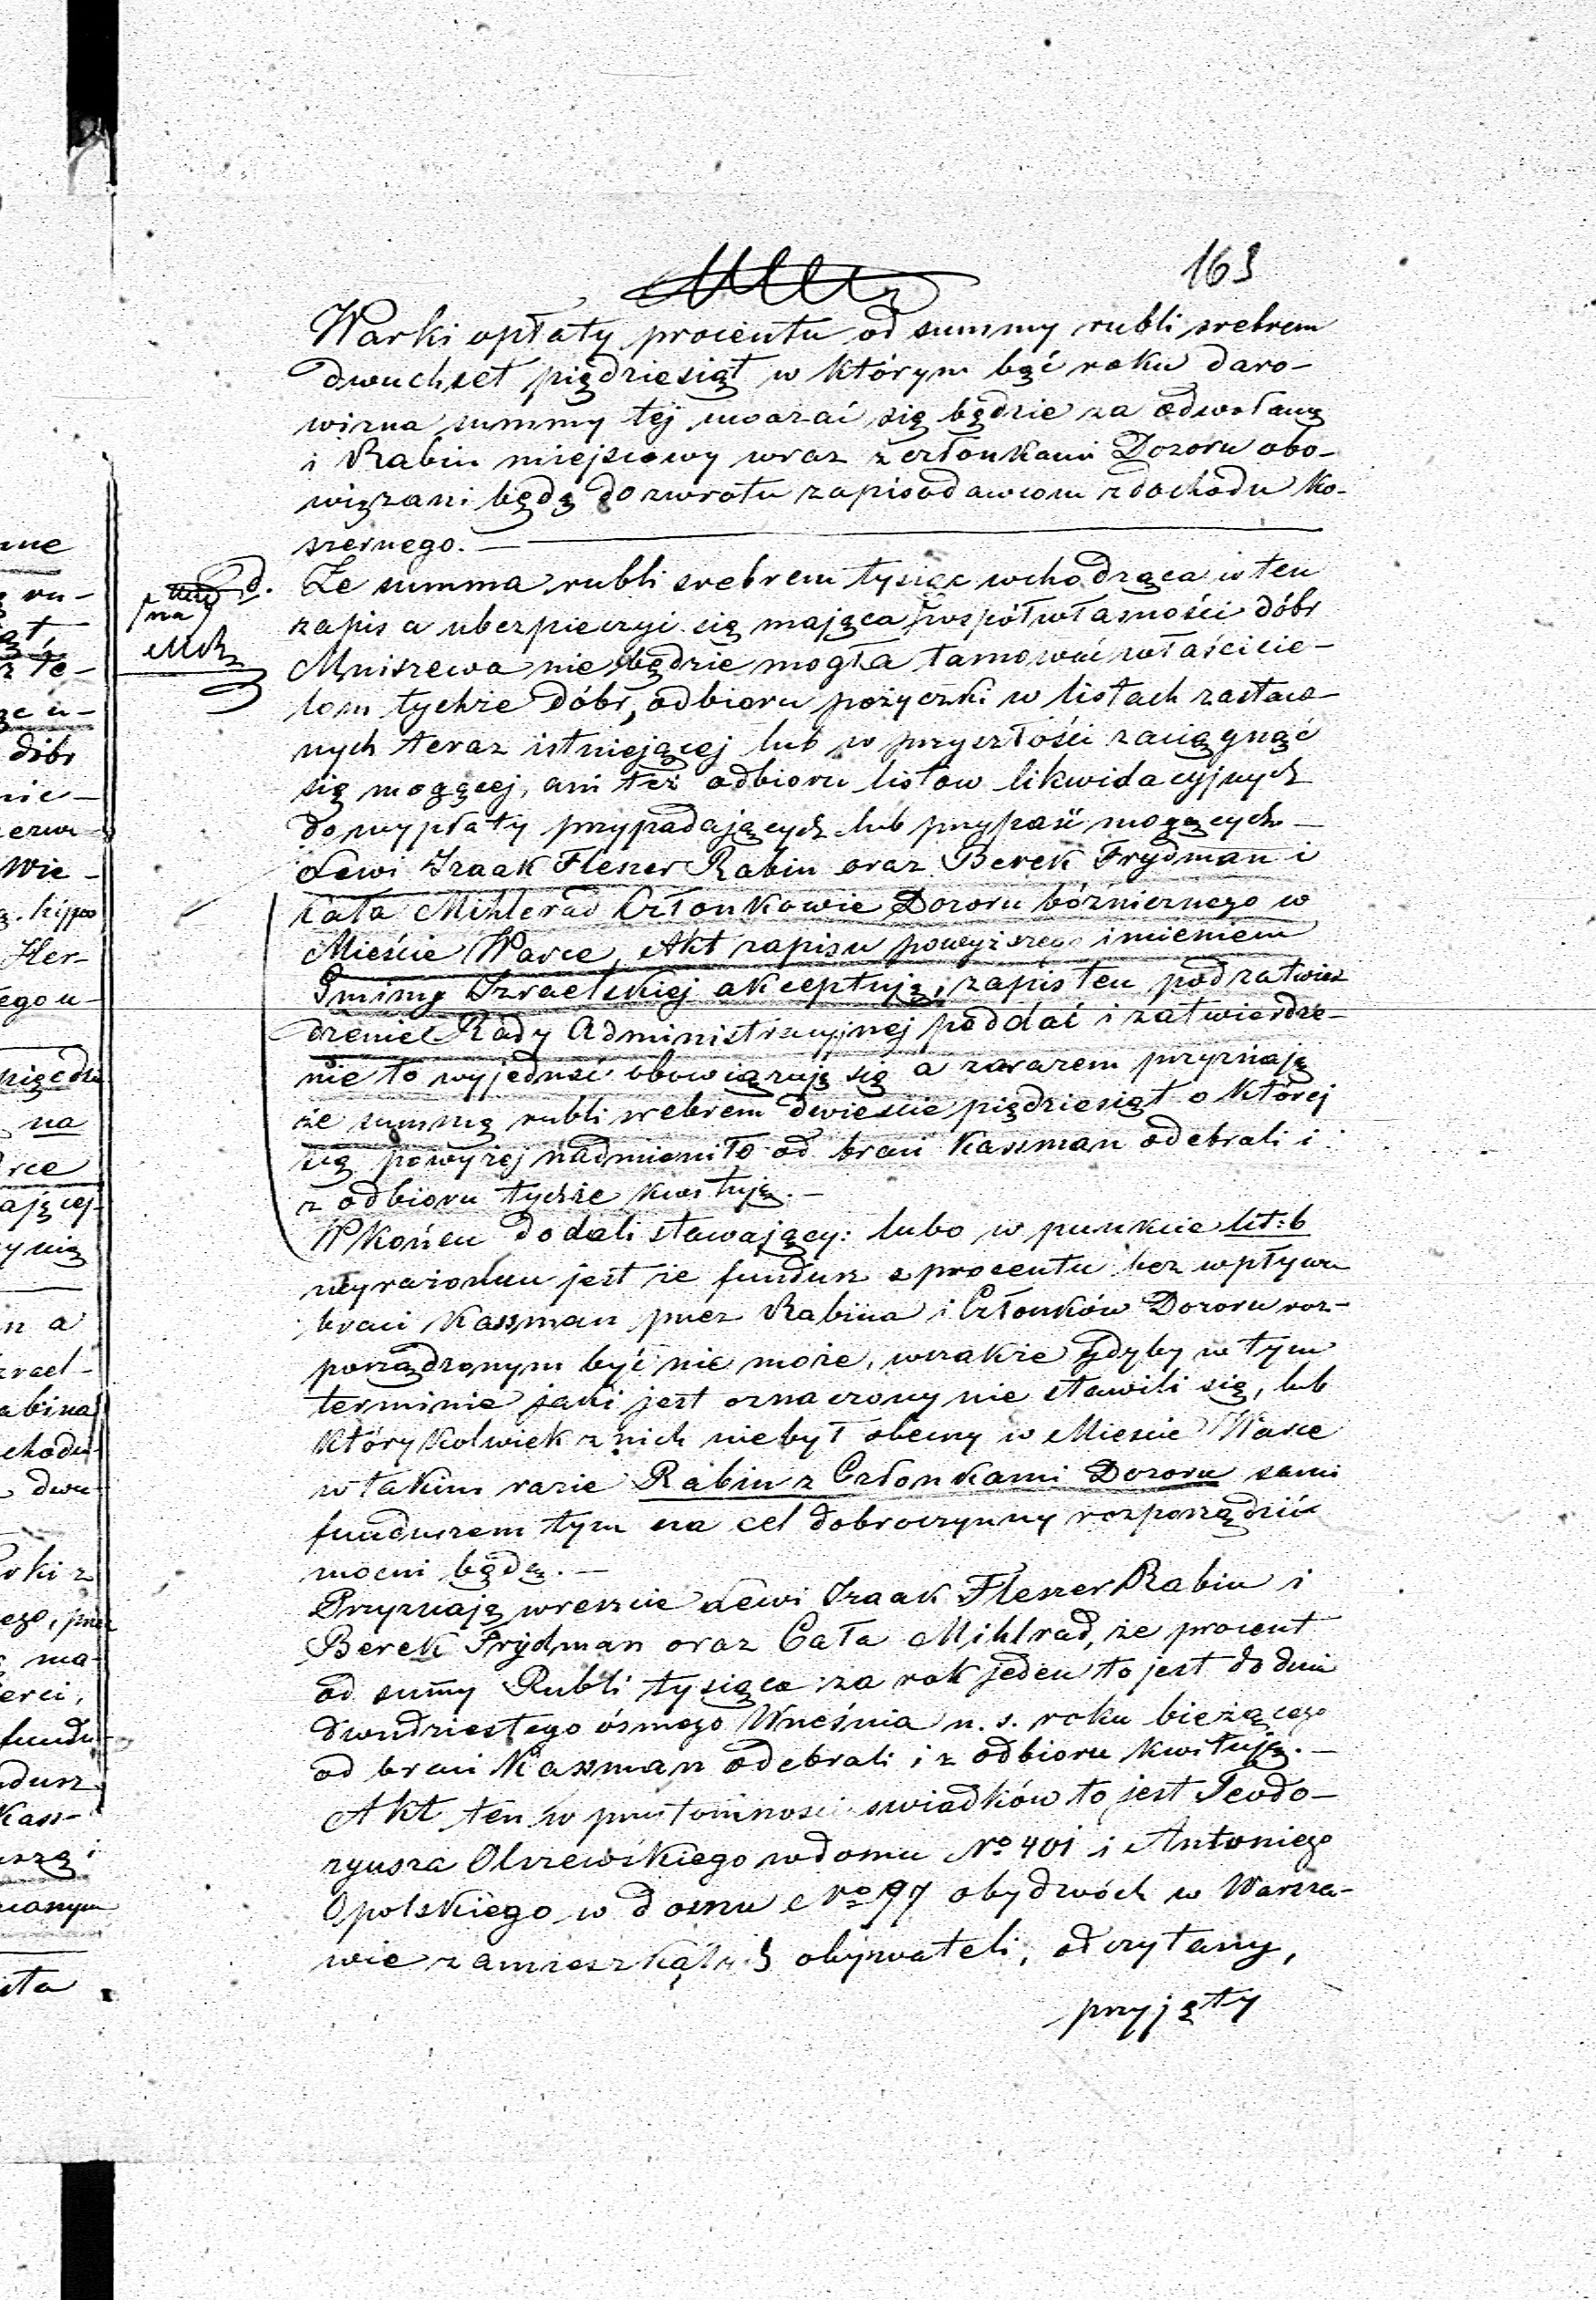 163
Warki opłaty procentu od summy rubli srebrem
dwuchset piędziesiąt w którym bąć roku daro-
wizna summy tej uważać się będzie za odwołaną
i Rabin miejscowy wraz z członkami Dozoru obo-
wiązani będą do zwrotu zapisodawcom z dochodu ko-
szernego. —
d. Że summa rubli srebrem tysiąc wchodząca w ten
(na)
zapis a ubezpieczyć się mająca współwłasności dóbr
Mniszewa nie będzie mogła tamować właścicie-
lom tychże dóbr, odbioru pożyczki w listach zastaw-
nych teraz istniejącej lub w przyszłości zaciągnąć
się mogącej, ani też odbioru listow likwidacyjnych
do wypłaty przypadających lub przypaść mogących —
Lewi Izaak Fleszer Rabin oraz Berek Frydman i
Cała Mihlerad Członkowie Dozoru bóżnicznego w
Mieście Warce, Akt zapisu powyższego imieniem
Gminy Izraelskiej akceptują, zapis ten pod zatwier
dzenie Rady Administracyjnej poddać i zatwierdze-
nie to wyjednać obowiązują się a zarazem przyznają
że summę rubli srebrem dwieście piędziesiąt o której
się powyżej nadmieniło od braci Kassman odebrali i
z odbioru tychże kwitują. —
W końcu dodali stawający: lubo w punkcie lit: b
wyrażonem jest że fundusz z procentu bez wpływu
braci Kassman przez Rabina i Członków Dozoru roz-
porządzonym być nie może, wszakże gdyby w tym
terminie jaki jest oznaczony nie stawili się, lub
którykolwiek z nich niebył obecny w Mieście Warce
w takim razie Rabin z Członkami Dozoru sami
funduszem tym na cel dobroczynny rozporządzić
mocni będą. —
Przyznają wreszcie Lewi Izaak Fleszer Rabin i
Berek Frydman oraz Cała Mihlrad, że procent
od summy Rubli tysiąca za rok jeden to jest do dnia
dwudziestego ósmego Września n. s. roku bieżącego
od braci Kassman odebrali i z odbioru kwitują. —
Akt ten w przytomności swiadków to jest Teodo-
zyusza Olszewskiego w domu No 401 i Antoniego
Opolskiego w domu No 97 obydwóch w Warsza-
wie zamieszkałych obywateli, odczytany,
przyjęty